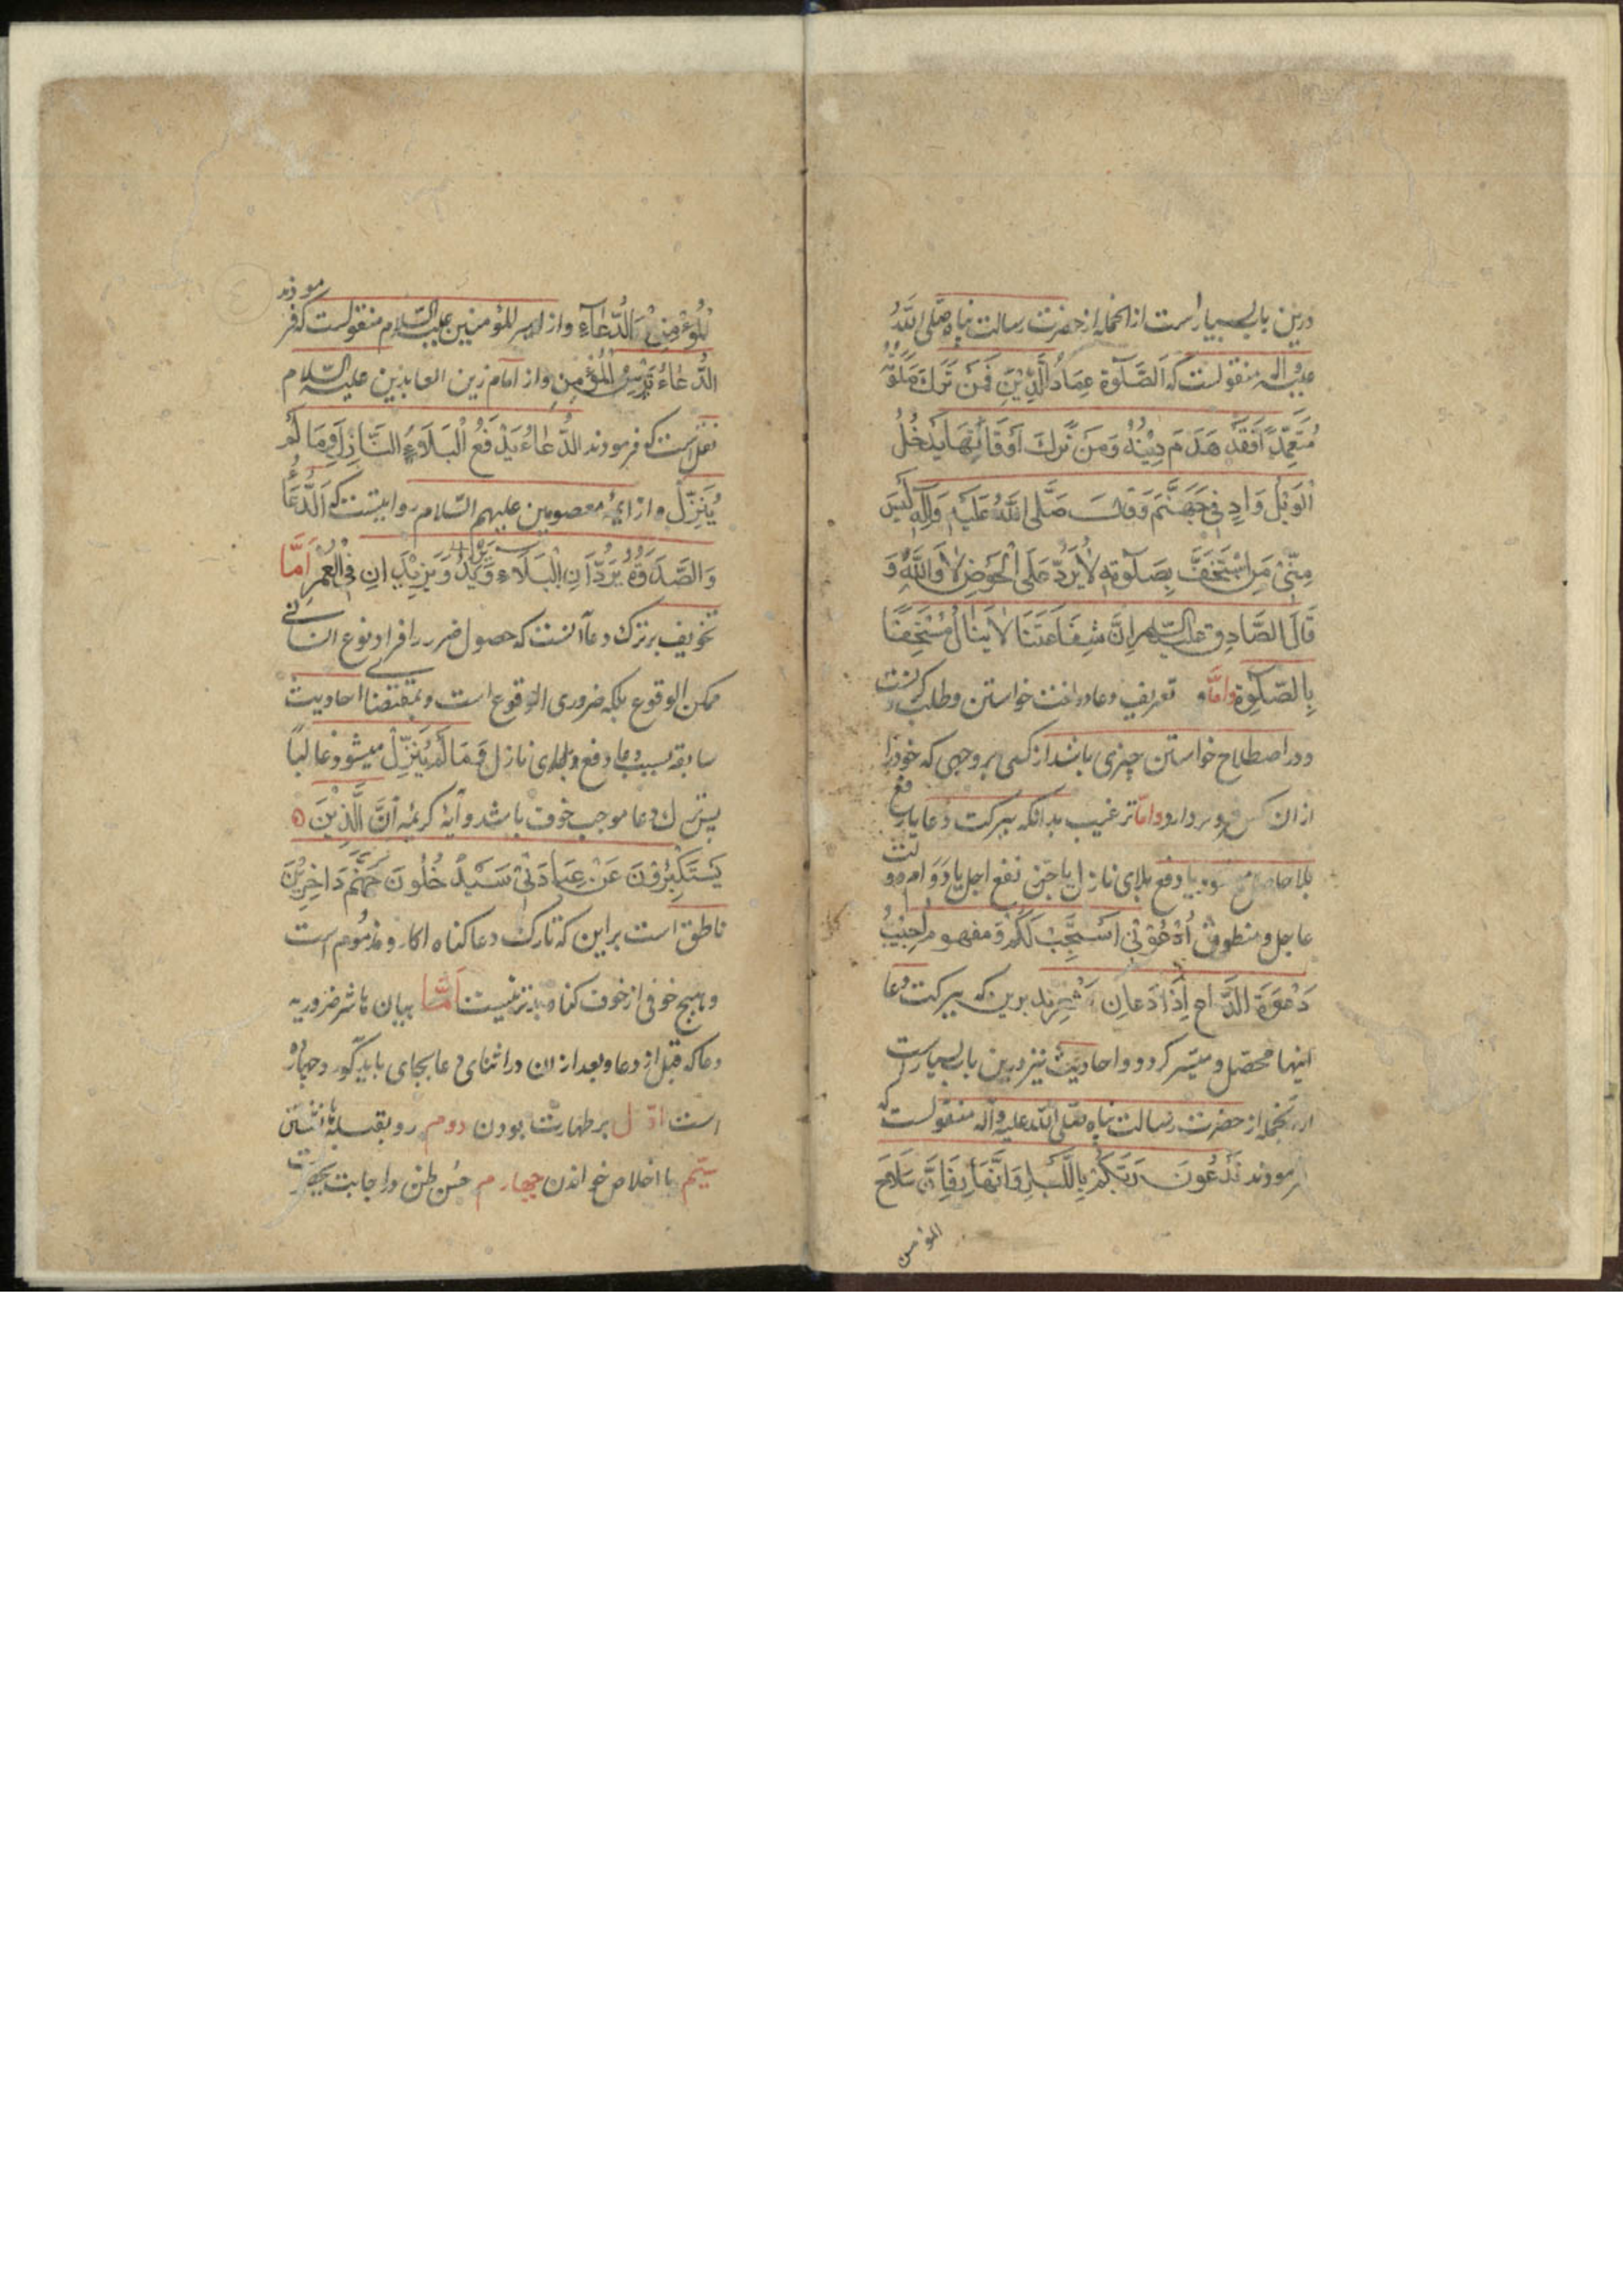 درین باب بسیار است از انجمله از حضرت رسالت پناه صلی اللهُ
علیه و اله منقولست که اَلصَّلوٰة عِمَادُ الدِّیْنِ فَمَنْ تَرَكَ صَلٰوتَهُ
مُتَعَمِّدًا فَقَدْ هَدَمَ دِیْنَهُ وَمَنْ تَرَكَ اَوْقَاتَهَا یَدْخُلُ
الْوَیْلَ وَادٍ فِیْ جَهَنَّمَ وَقَالَ صَلَّی اللهُ عَلَیْهِ وَاٰلِهِ لَیْسَ
مِنِّیْ مَنِ اسْتَخَفَّ بِصَلٰوتِهِ لَا یَرِدُ عَلَی الْحَوْضِ لَا وَاللهِ وَ
قَالَ الصَّادِق علیه السّلام اِنَّ شَفَاعَتَنَا لَا یَنَالُ مُسْتَخِفًّا
بِالصَّلٰوةِ واَمَّا و تعریف دعا در لغت خواستن و طلب کردنست
و در اصطلاح خواستن چیزی باشد از کسی بر وجهی که خود را
از ان کس فروتر دارد واَمّا ترغیب بدانکه ببرکت دعا یا رفع
بلا حاصل میشود یا دفع بلای نازل یا جرّ نفع اجل یا دَوَام دولت
عاجل و منطوق اُدْعُوْنِیْ اَسْتَجِبْ لَكُمْ وَ مفهوم اُجِیْبُ
دَعْوَةَ الدَّاعِ اِذَا دَعَانِ مُشْعِرند برین که ببرکت دعا
اینها محصّل و میسّر گردد و احادیث نیز درین باب بسیار است
از انجمله از حضرت رسالت پناه صلّی الله علیه واله منقولست که
فرمودند تَدْعُونَ رَبَّكُمْ بِاللَّیْلِ وَالنَّهَارِ فَاِنَّ سَلَاحَ
المؤمن
الْمُؤْمِنِ الدُّعَآءِ و از امیر المؤمنین علیه السّلام منقولست که فرمودند
الدُّعَاءُ تُرْسُ الْمُؤْمِنِ و از امام زین العابدین علیه السّلام
نقل است که فرمودند الدُّعَاءُ یَدْفَعُ الْبَلَاءَ النَّازِلَ وَمَا لَمْ
یُنَزِّلْ و از ایمهٔ معصومین علیهم السّلام روایتست که اَلدُّعَآءُ
وَالصَّدَقَةُ یَرُدَّانِ الْبَلَاءَ وَیَزِیْدَانِ فِی الْعُمْرِ اَمَّا
تخویف بر ترک دعا انست که حصول ضرر را افراد نوع انسانی
ممکن الوقوع بلکه ضروری الوقوع است و بمقتضا احادیث
سابقه بسبب دعا دفع بلای نازل وَ مَا لَمْ یُنَزِّلْ میشود غالبًا
پس ترک دعا موجب خوف باشد و آیهٔ کریمه اَنَّ الَّذِیْنَ
یَسْتَكْبِرُوْنَ عَنْ عِبَادَتِیْ سَیَدْخُلُونَ جَهَنَّمَ دَاخِرِیْنَ
ناطق است بر این که تارک دعا کناهکار و مذمُوم است
و هیچ خوفی از خوف کناه بدتر نیست اَمَّا بیان مباشر ضروریه
دعا که قبل از دعا و بعد از ان و در اثنای دعا بجای باید آورد و چهارده
است اوّل بر طهارت بودن دوم رو بقبله نشستن
سیّم با اخلاص خواندن چهارم حُسن ظن در اجابت